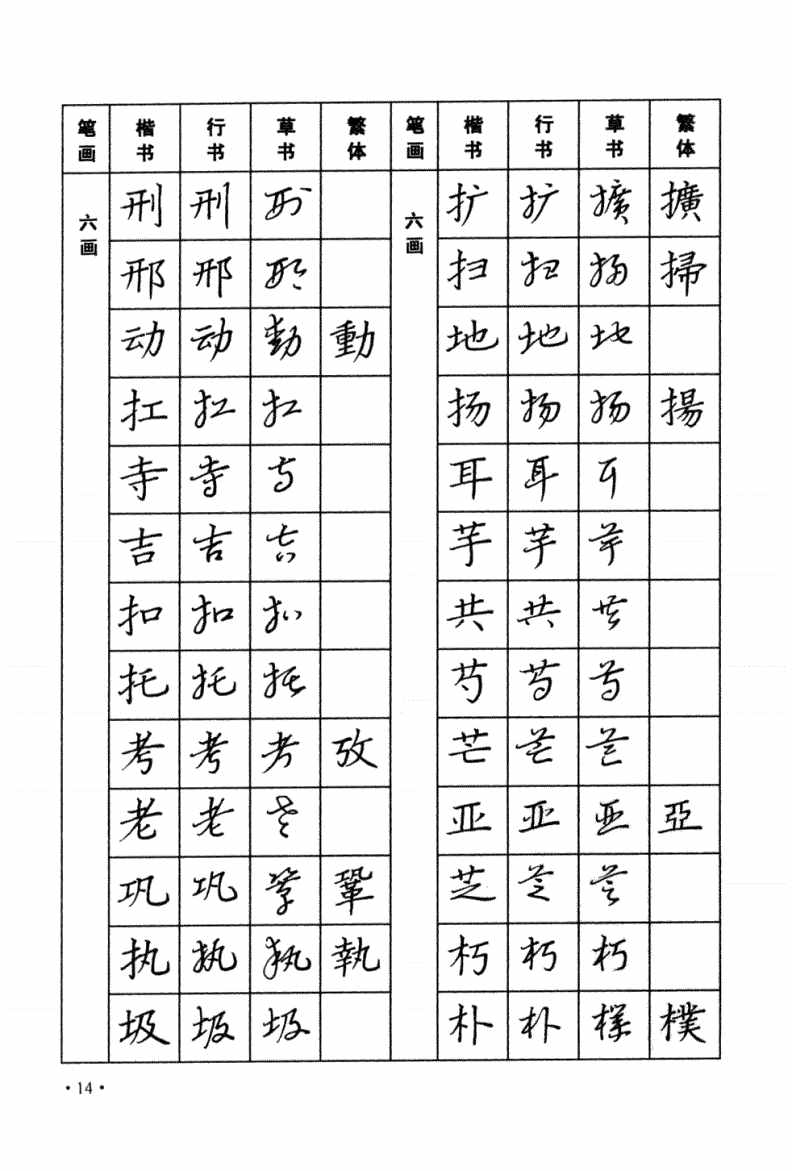 笔画 楷书 行书 草书 繁体 笔画 楷书 行书 草书 繁体
六画 刑 刑 刑 六画 扩 扩 擴 擴
邢 邢 邢 扫 扫 掃 掃
动 动 動 動 地 地 地
扛 扛 扛 扬 扬 揚 揚
寺 寺 寺 耳 耳 耳
吉 吉 吉 芋 芋 芋
扣 扣 扣 共 共 共
托 托 托 芍 芍 芍
考 考 考 攷 芒 芒 芒
老 老 老 亚 亚 亞 亞
巩 巩 鞏 鞏 芝 芝 芝
执 执 執 執 朽 朽 朽
圾 圾 圾 朴 朴 樸 樸
·14·